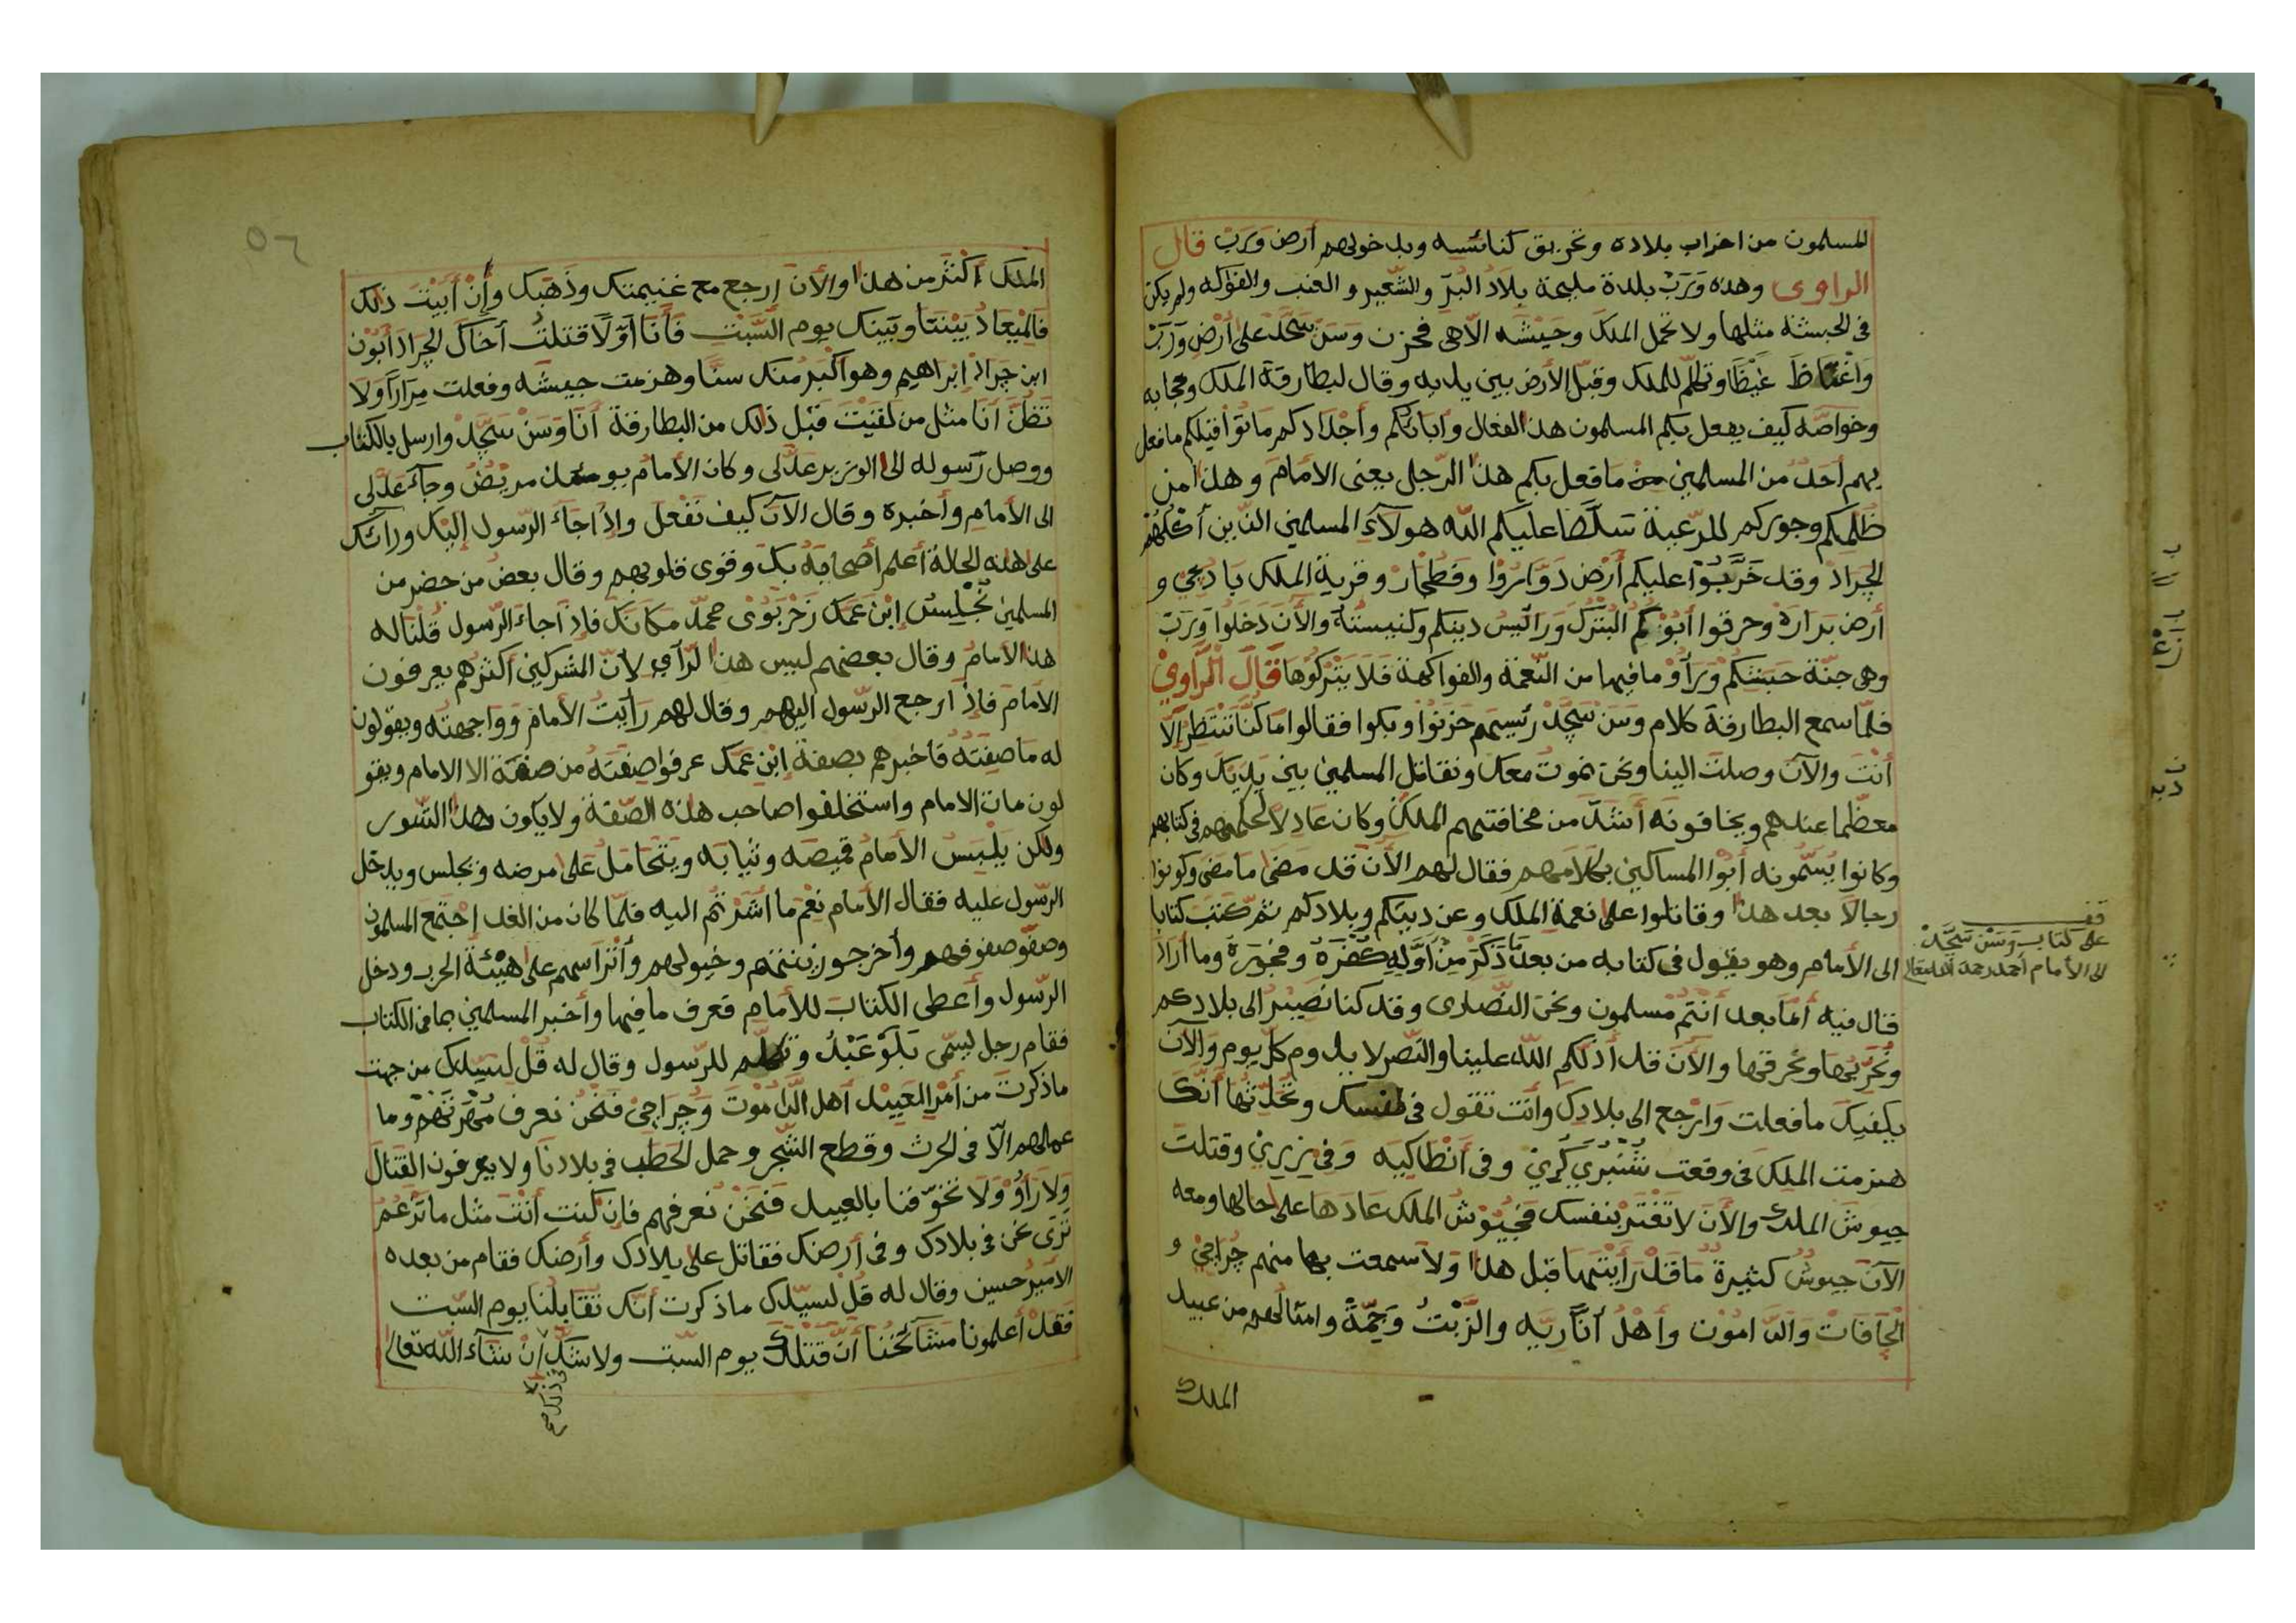 المسلمون من اخراب بلاده وتحريق كنائسيه وبدخولهم أرض وَرَبْ قال
الراوى وهذه وَرَبْ بلدة مليحة بلاد البُرّ والشّعير والعنب والفواكه ولم يكن
فى الحبشة مثلها ولا تحمل الملك وجيشه الّا هى فحزن وَسَنْ سَجَّدْ على أرْضِ وَرَبْ
وَاغْتَاظَ غَيْظًا وتكلّم للملك وقبّل الأرض بين يديه وقال لبطارقة الملك وحجابه
وخواصّه كيف يفعل بكم المسلمون هذا الفعال وآبائكم وأجدادكم ماتوا قبلكم ما فعل
بهم أحدٌ من المسلمين ما فعل بكم هذا الرّجل يعنى الامام وهذا من
ظلمكم وجوركم للرّعية سلّط عليكم الله هولآءَ المسلمين الذين أكلهُمْ
الجراد وقد خَرَّبُوْا عليكم أرْض دَوَّارُوْا وفطجار وقرية الملك بادقى و
أرض بَرارَة وحرقوا أبُوْكُمُ البَتْرَك ورائيس دينكم وكنيستهُ والأن دَخَلُوا وَرَبْ
وهى جنّة حَبَشتِكُمْ وَرَأوْ ما فيها من النّعمة والفواكهة فَلَا يَتْرُكُوْهَا قَالَ الرَّاوِيْ
فلمّا سمع البطارقة كلام وَسَنْ سَجَّدْ رئيسهم حَزِنُوْا وبكوا فقالوا مَا كُنَّا نَنْتَظِرُ الَّا
أنْتَ والآن وصلتَ الينا ونحن نموتُ معك ونقاتل المسلمين بين يديك وكان
معظّما عندهم ويخافونه أشَدَّ من مخافتهم الملك وكان عَادِلًا لحكمهم فى كتابهم
وكانوا يُسَمّونه أبُوْا المساكين بكلامهم فقال لهم الأن قد مَضَى ما مضى وكونوا
رجالًا بعد هذا وقاتلوا على نعمة الملك وعن دينكم وبلادكم ثمّ كتب كتابا
الى الأمام وهو يقول فى كتابه من بعد ما ذَكَرَ مِنْ أوَّلِهِ كُفْرَهُ وفجورَهُ وما أراد
قال فيه أمّا بعد أنْتُمْ مسلمون ونحن النّصارى وقد كنا نَصِيْرُ الى بلادكم
ونُخَرّبُهَا ونحرقها والأن قد أذلّكم الله علينا والنّصر لا يدوم كلّ يوم والآن
يكفيك ما فعلت وَارْجع الى بلادِك وأنت تقول فى نفسك وتحدّثها أنّك
هزمت الملك فى وقعت شَنْبَرِيْ كُرِيْ وفى أنْطاكيه وَفى زِرِيْ وقتلتَ
جيوشَ الملك والأن لا تَغْتَرّ بنفسك فجُيُوْشُ الملك عَادَهَا على حالها ومعه
الآن جيوشٌ كثيرةٌ ما قَدْ رَأيْتَهَا قبل هذا وَلا سمعت بها منهم چُراجىْ و
الجَافَاتْ وَالدّامُوْت وأهْلُ أنَّارِيَه والزَّبْتُ وَجِمّةُ وامثالهم من عبيد
الملك
قف
على كتاب وَسَنْ سَجَّدْ
الى الأمام أحمد رحمه الله تعالى
٥٦
الملك أكْثَر من هذا والأن ارجع مع غنيمتك وذَهَبك وإنْ أبَيْتَ ذلك
فالميعادُ بَيْنَنَا وبَيْنك يوم السَّبْت فَأنَا أوّلًا قتلتُ أخاك الجراد أبُوْن
ابن جراد إبراهيم وهو أكْبَرُ مِنْك سنًّا وهزمت جيشه وفعلت مِرَارًا وَلا
تَظُنّ أنَا مثل من لَقَيْتَ قَبْل ذلك من البطارقة أنَا وَسَنْ سَجَّدْ وارسل بالكتاب
ووصل رَسوله الى الوزير عَدْلى وكان الأمام يومئذ مريْضٌ وجآءَ عَدْلى
الى الأمام وأخبره وقال الآن كيف نَفْعَل وإذا جآءَ الرّسول إلَيْك ورآئك
على هذه الحالة أعلم أصحَابَهُ بك وقوى قلوبهم وقال بعض من حضر من
المسلمين نُجْلِسُ إبْن عَمّك زَحْرَبَوىْ محمّد مَكَانَك فإذا جآءَ الرّسول قُلْنَا له
هذا الامامُ وقال بعضهم ليس هذا الرّأى لأنّ المشركين أكثرهم يعرفون
الأمَام فإذا رجع الرّسول اليهم وقال لهم رأيْتُ الأمامَ وواجهتُه ويقولون
له ما صِفَتُهُ فاخبرهم بصفة إبْن عَمّك عرفوا صِفَتَهُ من صفة الا الامام ويقو
لون مات الامام واستخلفوا صاحب هذه الصّفة ولا يكون هذا الشّور
ولكن يَلْبَسُ الأمامُ قميصه وثيابه ويَتَحَامَلُ على مرضه ونجلس ويدخل
الرّسول عليه فقال الأمام نِعْمَ ما أشَرْتُم اليه فلمّا كان من الغد إجتمع المسلمون
وصفّو صفوفهم وأخرجو زينتهم وخيولهم وأتراسهم على هَيْئَة الحرب ودخل
الرّسول وأعطى الكتابَ للأمام فعرف ما فيها وأخبر المسلمين بما فى الكتاب
فقام رجل يسمّى بَلَوْ عَبْدُ وتكلّم للرّسول وقال له قُلْ لسيّدك من جهت
ماذكرتَ من أمْرِ العَبيْد أهل الدَّامُوْت وَچُراجىْ فَنَحْنُ نعرف مُهْرَتَهُمْ وما
عمالهم الّا فى الحرث وقطع الشّجر وحمل الحطَب فى بلادنَا ولا يعرفون القتال
وَلا رَأَوْ وَلَا تخوّفنا بالعبيد فَنَحْنُ نعرفهم فإن كنت أنْتَ مثل ما تَزْعُمُ
ترى نحن فى بلادك وفى أرضك فقاتل على بلادك وأرضك فقام من بعده
الأمير حسين وقال له قُلْ لسيّدك ماذكرت أنّك تُقَابلُنا يوم السّبت
فَقَدْ أعلمونا مشآئخُنا أنّ قَتْلَك يوم السّبت ولا شكّ إنْ شآءَ الله تعالى
فى ذلك صح